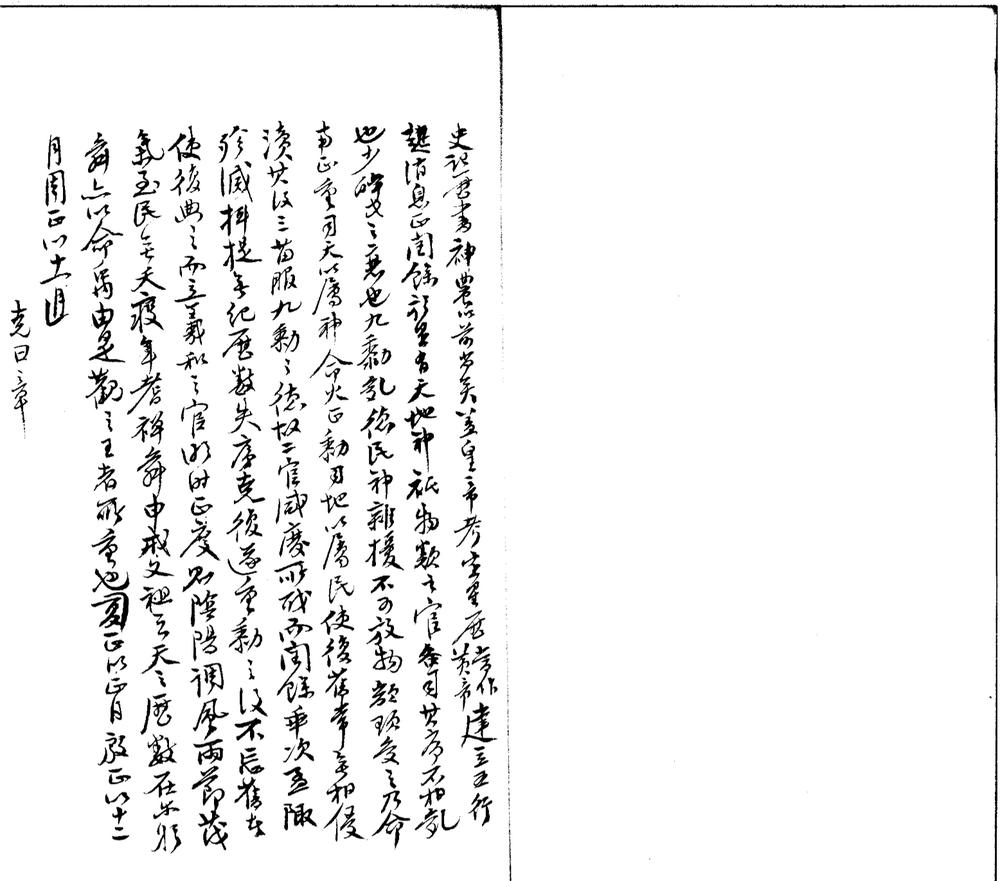 史記曆書神農以前尚矣蓋皇帝考定星曆當作黃帝建立五行
起消息正閏餘於是有天地神祇物類之官各司其序不相亂
也少皞氏之衰也九黎亂德民神雜擾不可放物顓頊受之乃命
南正重司天以屬神命火正黎司地以屬民使復舊常無相侵
瀆其後三苗服九黎之德故二官咸廢所職而閏餘乖次孟陬
殄滅攝提無紀曆數失序堯復遂重黎之後不忘舊者
使復典之而立羲和之官明時正度則陰陽調風雨節茂
氣至民無夭疫年耆禪舜申戒文祖云天之曆數在爾躬
舜亦以命禹由是觀之王者所重也夏正以正月殷正以十二
月周正以十一月
堯曰章